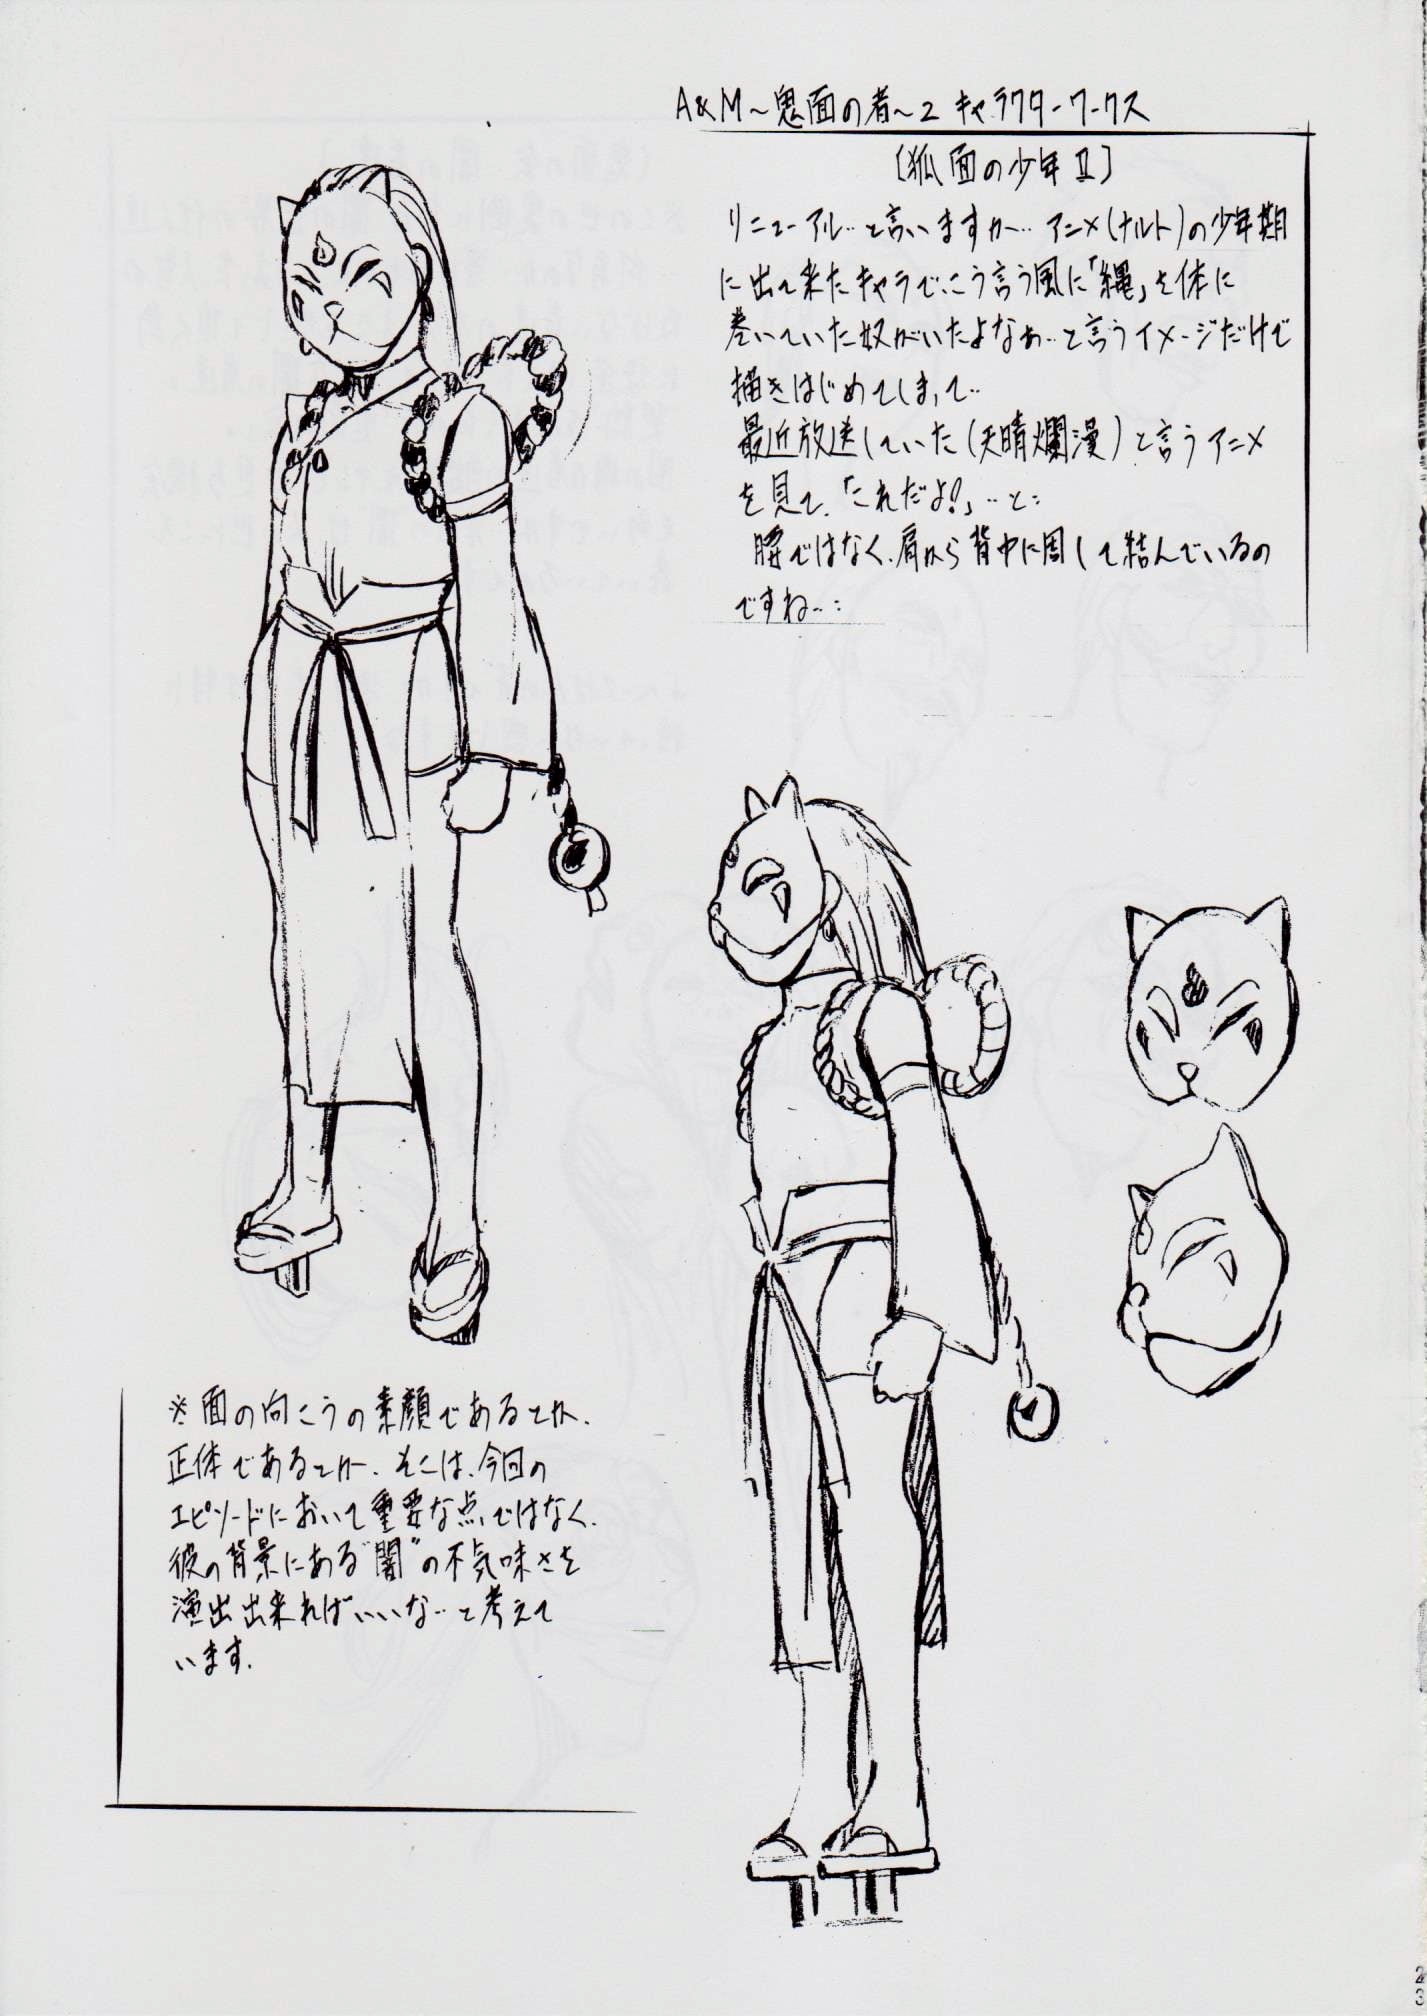 A&M~鬼面の者~2 キャラクターワークス
〔狐面の少年Ⅱ〕
リニューアル…と言いますか…アニメ(ナルト)の少年期
に出て来たキャラで、こう言う風に「縄」を体に
巻いていた奴がいたよなぁ…と言うイメージだけで
描きはじめてしまって…
最近放送していた(天晴爛漫)と言うアニメ
を見て、「これだよ!」…と:
腰ではなく、肩から背中に周して結んでいるの
ですね…:
※面の向こうの素顔であるとか、
正体であるとか、そこは、今回の
エピソードにおいて重要な点ではなく、
彼の背景にある"闇"の不気味さを
演出出来ればいいな…と考えて
います.
23